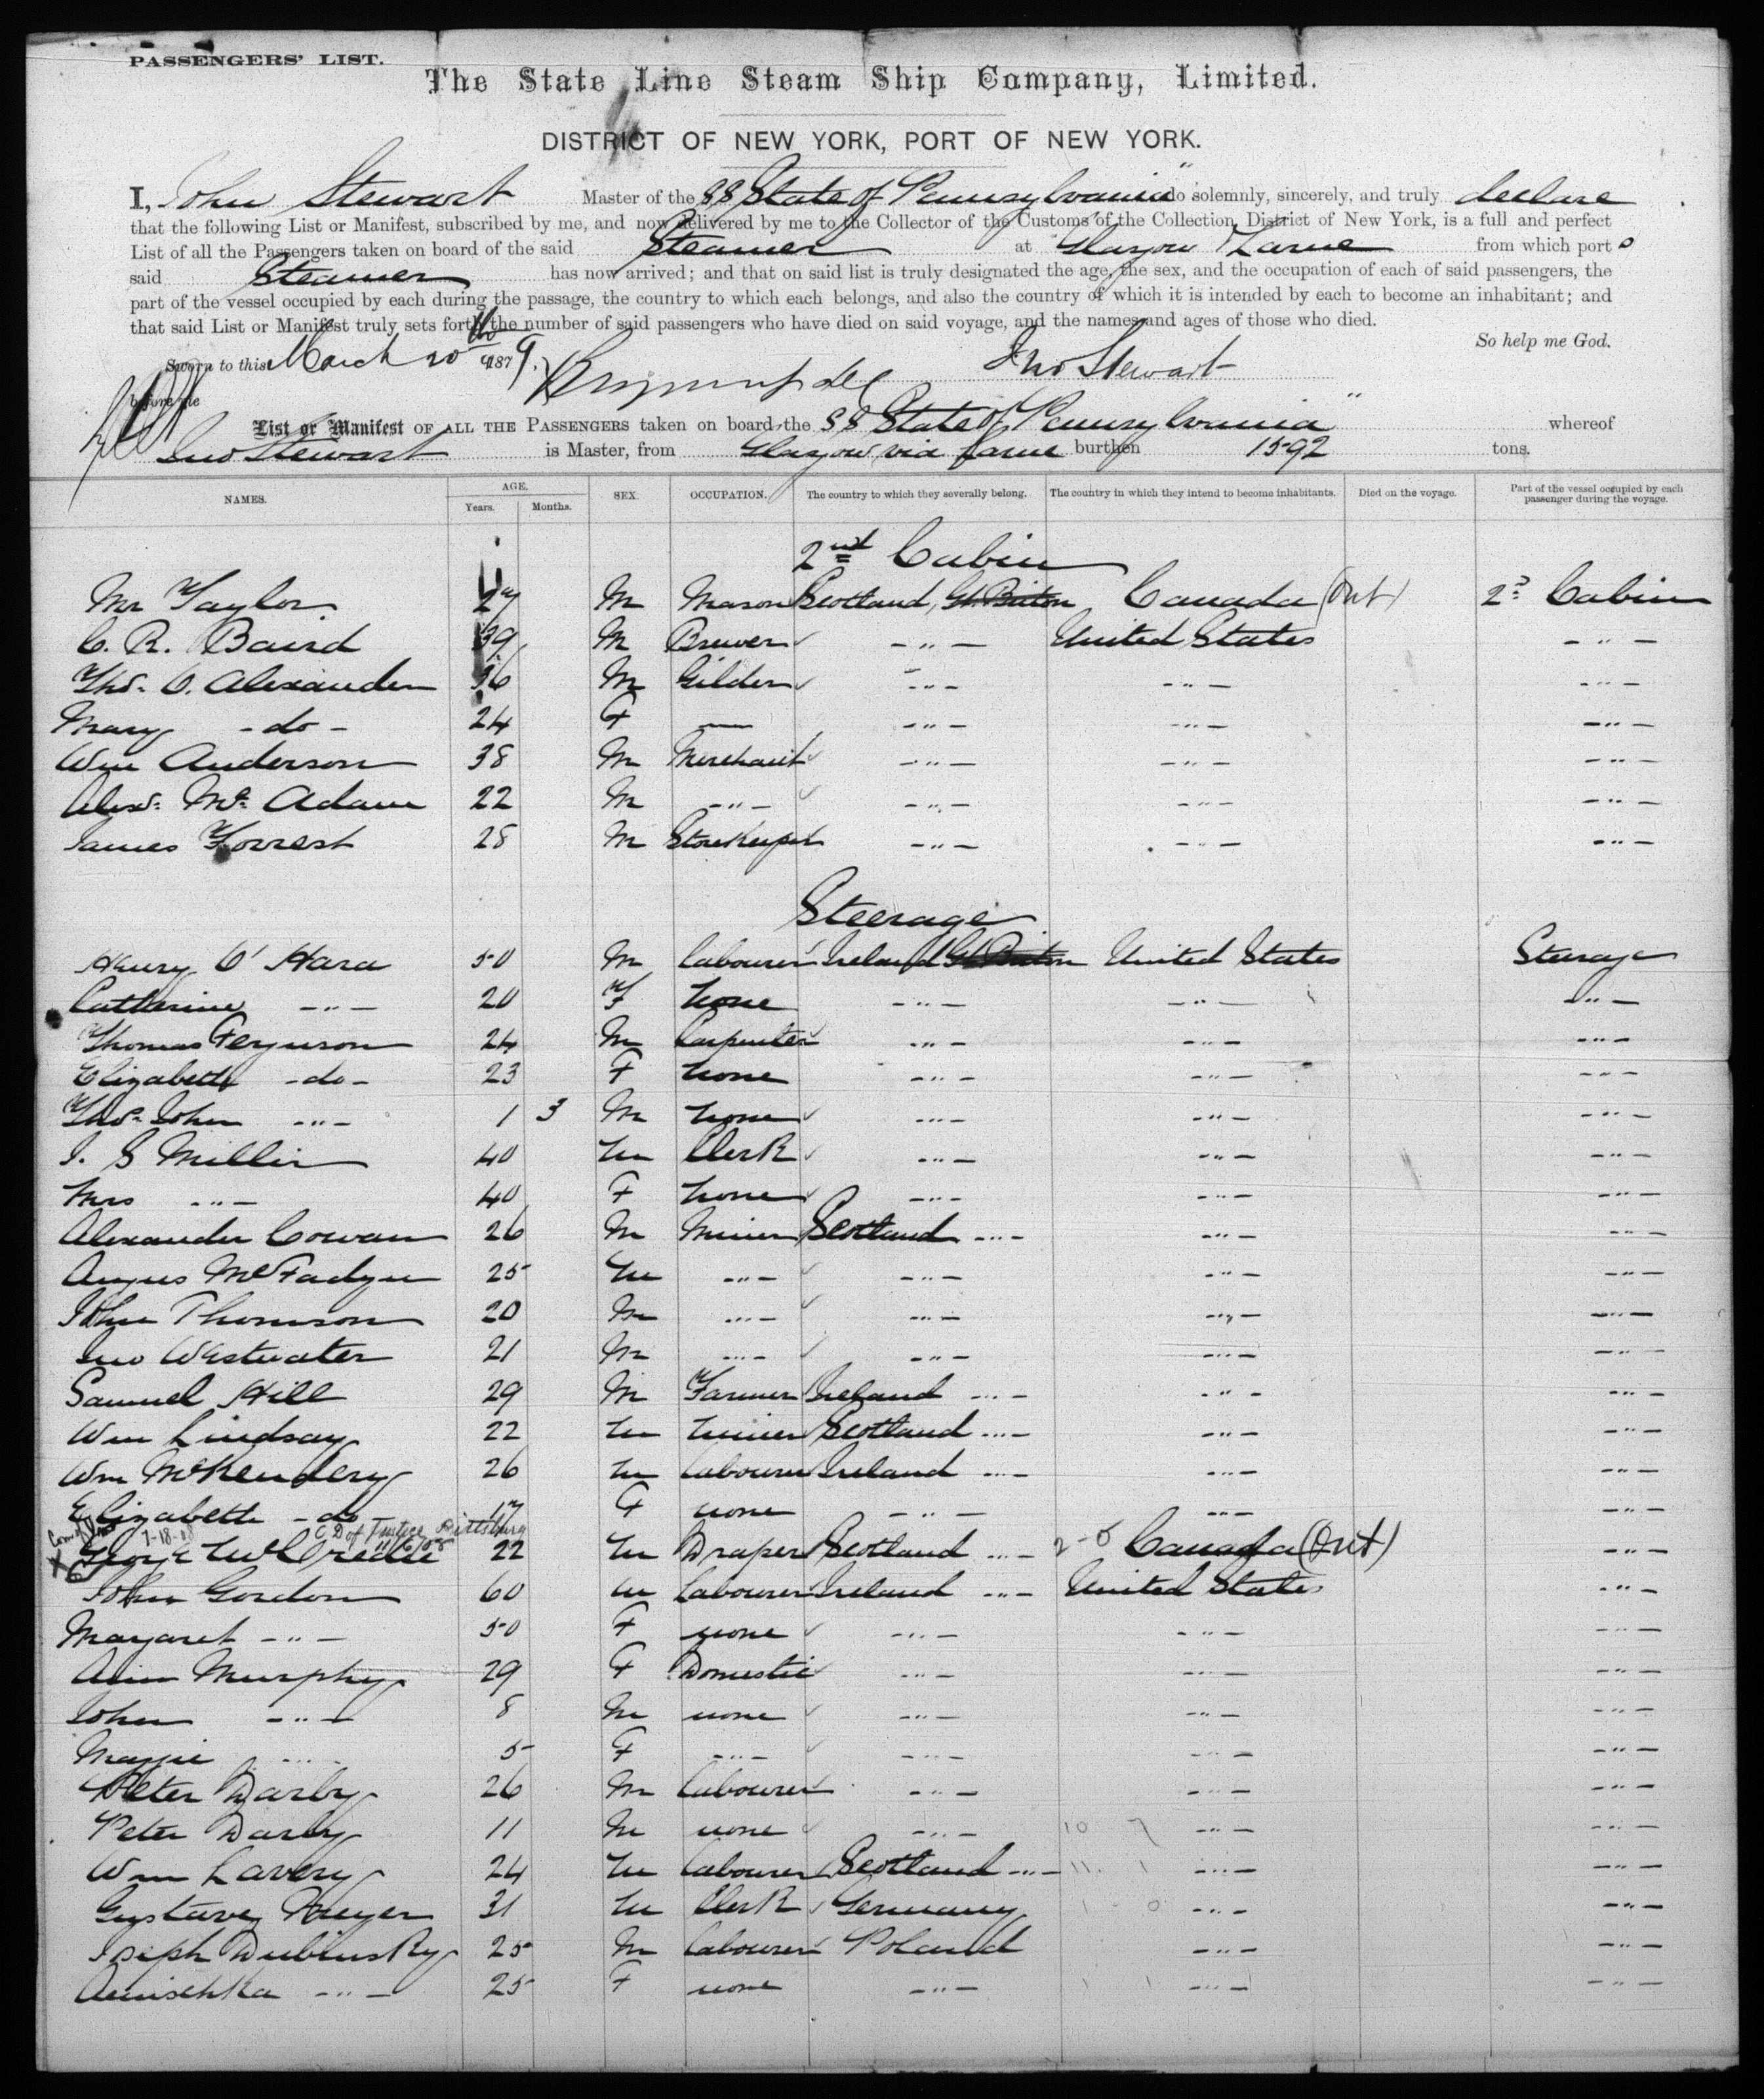 PASSENGERS' LIST.
The State Line Steam Ship Company, Limited.
DISTRICT OF NEW YORK, PORT OF NEW YORK.
I, John Stewart Master of the SS State of Pennsylvania" do solemnly, sincerely, and truly declare
that the following List or Manifest, subscribed by me, and now delivered by me to the Collector of the Customs of the Collection District of New York, is a full and perfect
List of all the Passengers taken on board of the said Steamer at Glasgow & Larne from which port s
said Steamer has now arrived; and that on said list is truly designated the age, the sex, and the occupation of each of said passengers, the
part of the vessel occupied by each during the passage, the country to which each belongs, and also the country of which it is intended by each to become an inhabitant; and
that said List or Manifest truly sets forth the number of said passengers who have died on said voyage, and the names and ages of those who died.
So help me God.
Sworn to this March 20th 1879. Jno Stewart
before me
List or Manifest OF ALL THE PASSENGERS taken on board the SS State of Pennsylvania" whereof
Jno Stewart is Master, from Glasgow via Larne burthen 1592 tons.
NAMES. AGE. Years. Months. SEX. OCCUPATION. The country to which they severally belong. The country in which they intend to become inhabitants. Died on the voyage. Part of the vessel occupied by each passenger during the voyage.
2nd Cabin
Mr Taylor 27 M Mason Scotland, Gt. Briton Canada (Out) 2d Cabin
C. R. Baird 39 M Brewer -"- United States -"-
Thos. C. Alexander 36 M Gilder -"- -"- -"-
Mary -do- 24 F — -"- -"- -"-
Wm Anderson 38 M Merchant -"- -"- -"-
Alexr. McAdam 22 M -"- -"- -"- -"-
James Forrest 28 M Storekeeper -"- -"- -"-
Steerage
Henry O'Hara 50 M Labourer Ireland Gt. Briton United States Steerage
Catherine -"- 20 F None -"- -"- -"-
Thomas Ferguson 24 M Carpenter -"- -"- -"-
Elizabeth -do- 23 F None -"- -"- -"-
Thos. John -"- 1 3 M None -"- -"- -"-
J. S Millin 40 M Clerk -"- -"- -"-
Mrs -"- 40 F None -"- -"- -"-
Alexander Cowan 26 M Miner Scotland -"- -"- -"-
Angus McFadyen 25 M -"- -"- -"- -"-
John Thomson 20 M -"- -"- -"- -"-
Jno Westwater 21 M -"- -"- -"- -"-
Samuel Hill 29 M Farmer Ireland -"- -"- -"-
Wm Lindsay 22 M Miner Scotland -"- -"- -"-
Wm McKendery 26 M Labourer Ireland -"- -"- -"-
Elizabeth -do- 17 F none -"- -"- -"-
7-18-08 C D of Justice Pittsburg
X George McCredie 22 M Draper Scotland -"- Canada (Out) -"-
John Gordon 60 M Labourer Ireland -"- United States -"-
Margaret -"- 50 F none -"- -"- -"-
Ann Murphy 29 F Domestic -"- -"- -"-
John -"- 8 M none -"- -"- -"-
Maggie -"- 5 F -"- -"- -"- -"-
Peter Darby 26 M Labourer -"- -"- -"-
Peter Darby 11 M none -"- 10 7 -"- -"-
Wm Lavery 24 M Labourer Scotland -"- 11. 1 -"- -"-
Gustave Meyer 31 M Clerk Germany 1 - 0 -"- -"-
Joseph Dubinsky 25 M Labourer Poland -"- -"-
Anischka -"- 25 F none -"- 1 1 -"- -"-